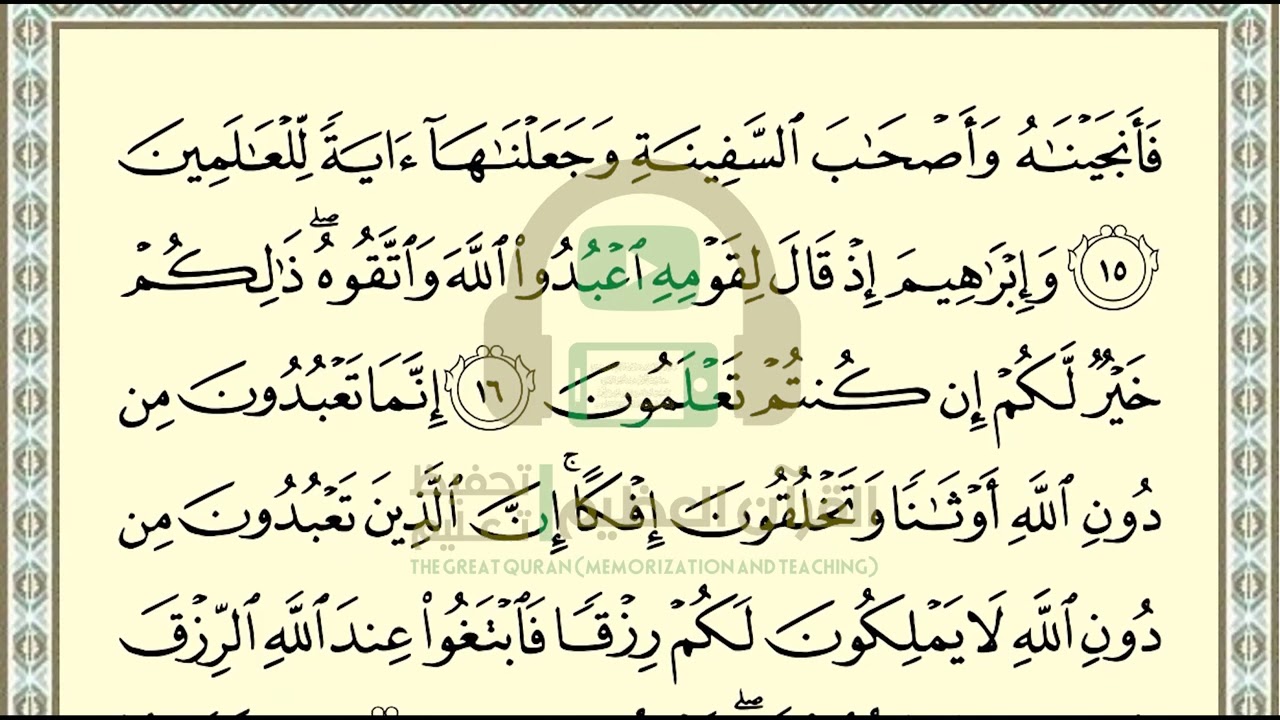 فَأَنجَيْنَـٰهُ وَأَصْحَـٰبَ ٱلسَّفِينَةِ وَجَعَلْنَـٰهَآ ءَايَةً لِّلْعَـٰلَمِينَ
١٥ وَإِبْرَٰهِيمَ إِذْ قَالَ لِقَوْمِهِ ٱعْبُدُوا۟ ٱللَّهَ وَٱتَّقُوهُ ۖ ذَٰلِكُمْ
خَيْرٌ لَّكُمْ إِن كُنتُمْ تَعْلَمُونَ ١٦ إِنَّمَا تَعْبُدُونَ مِن
دُونِ ٱللَّهِ أَوْثَـٰنًا وَتَخْلُقُونَ إِفْكًا ۚ إِنَّ ٱلَّذِينَ تَعْبُدُونَ مِن
القرآن العظيم | تحفيظ
تعليم
THE GREAT QURAN (MEMORIZATION AND TEACHING)
دُونِ ٱللَّهِ لَا يَمْلِكُونَ لَكُمْ رِزْقًا فَٱبْتَغُوا۟ عِندَ ٱللَّهِ ٱلرِّزْقَ